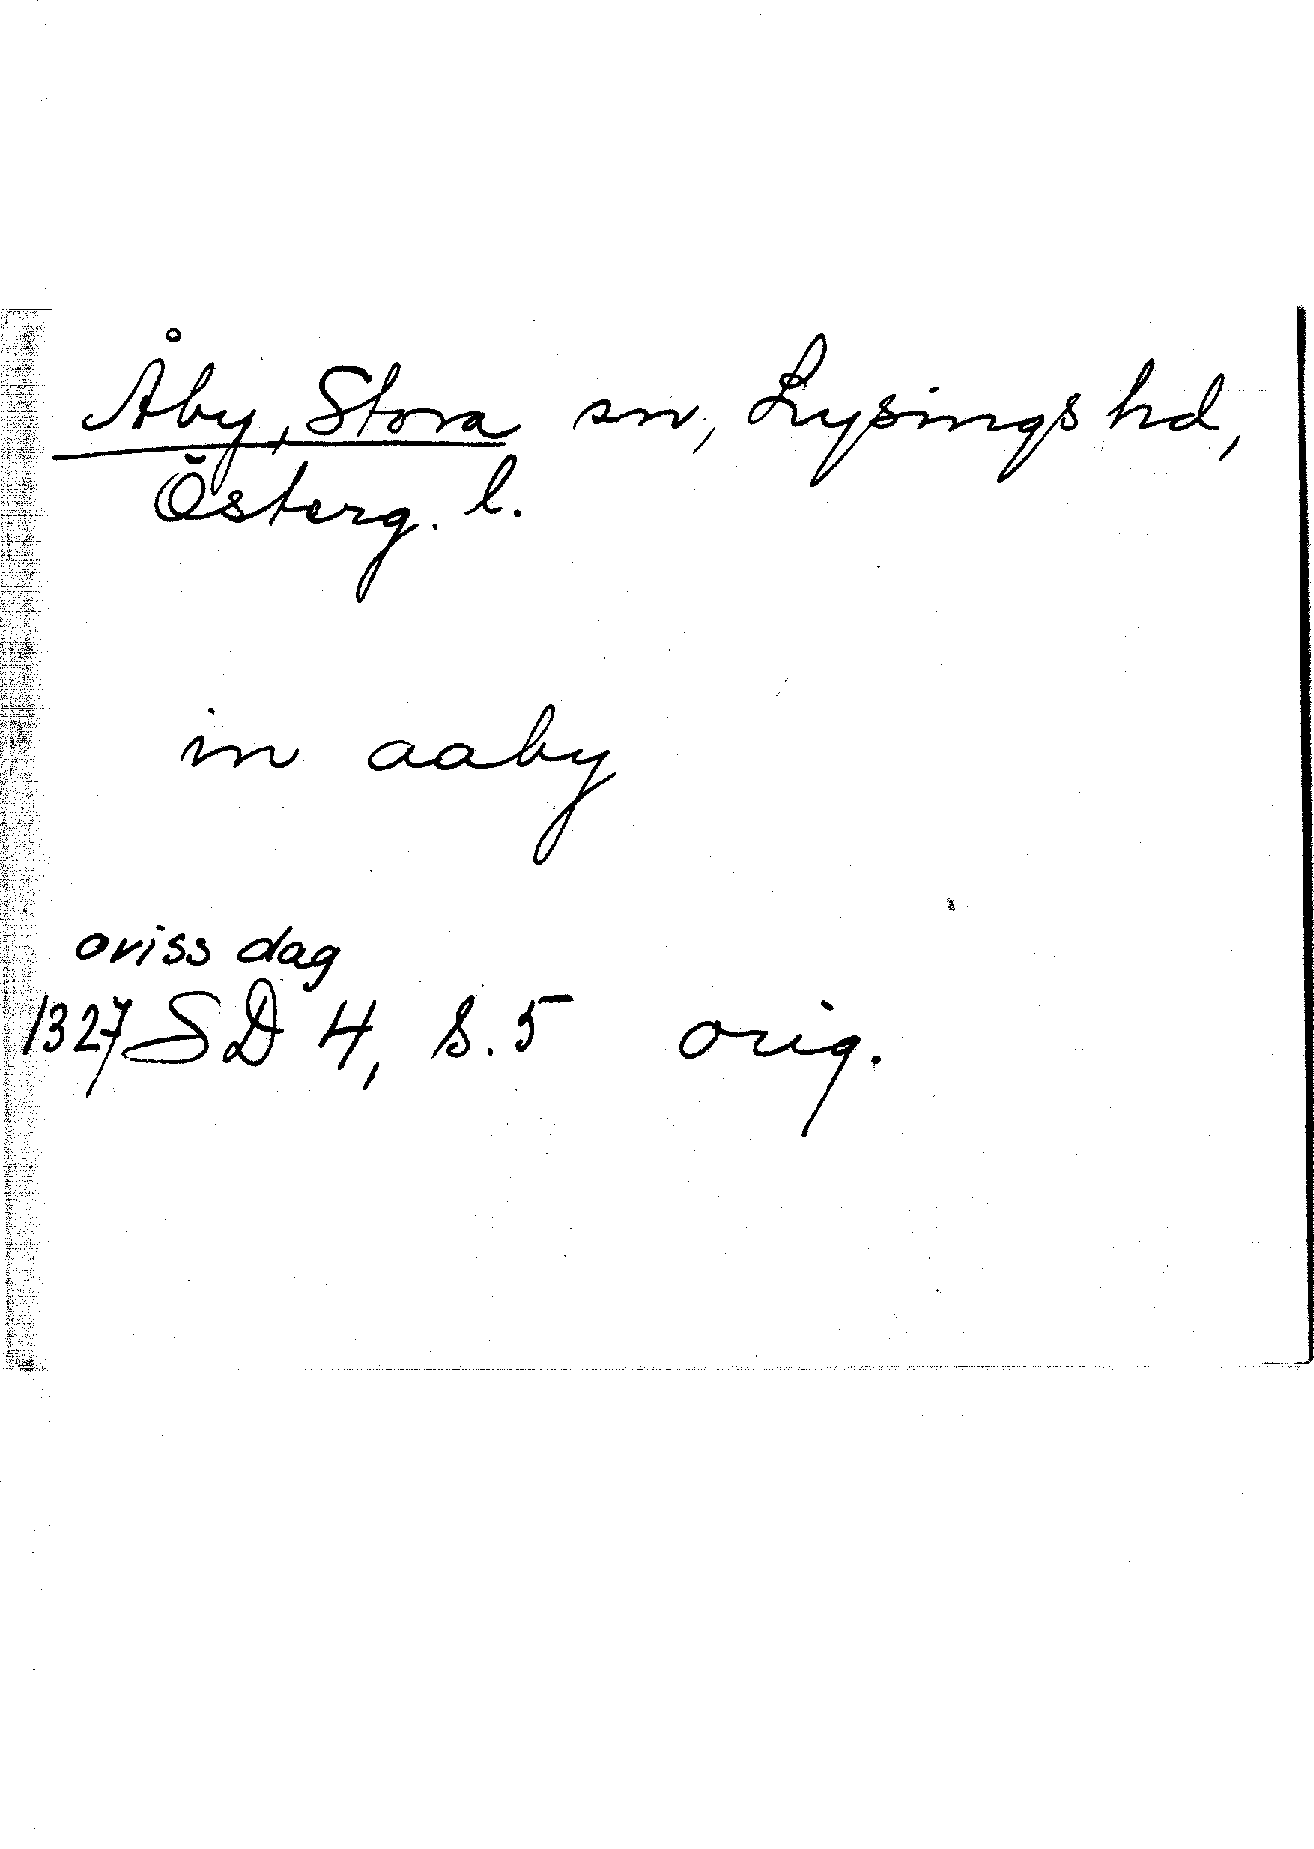 Åby, Stora sn, Lysings hd,
Österg. l.
in aaby
oviss dag
1327 SD 4, s. 5 orig.